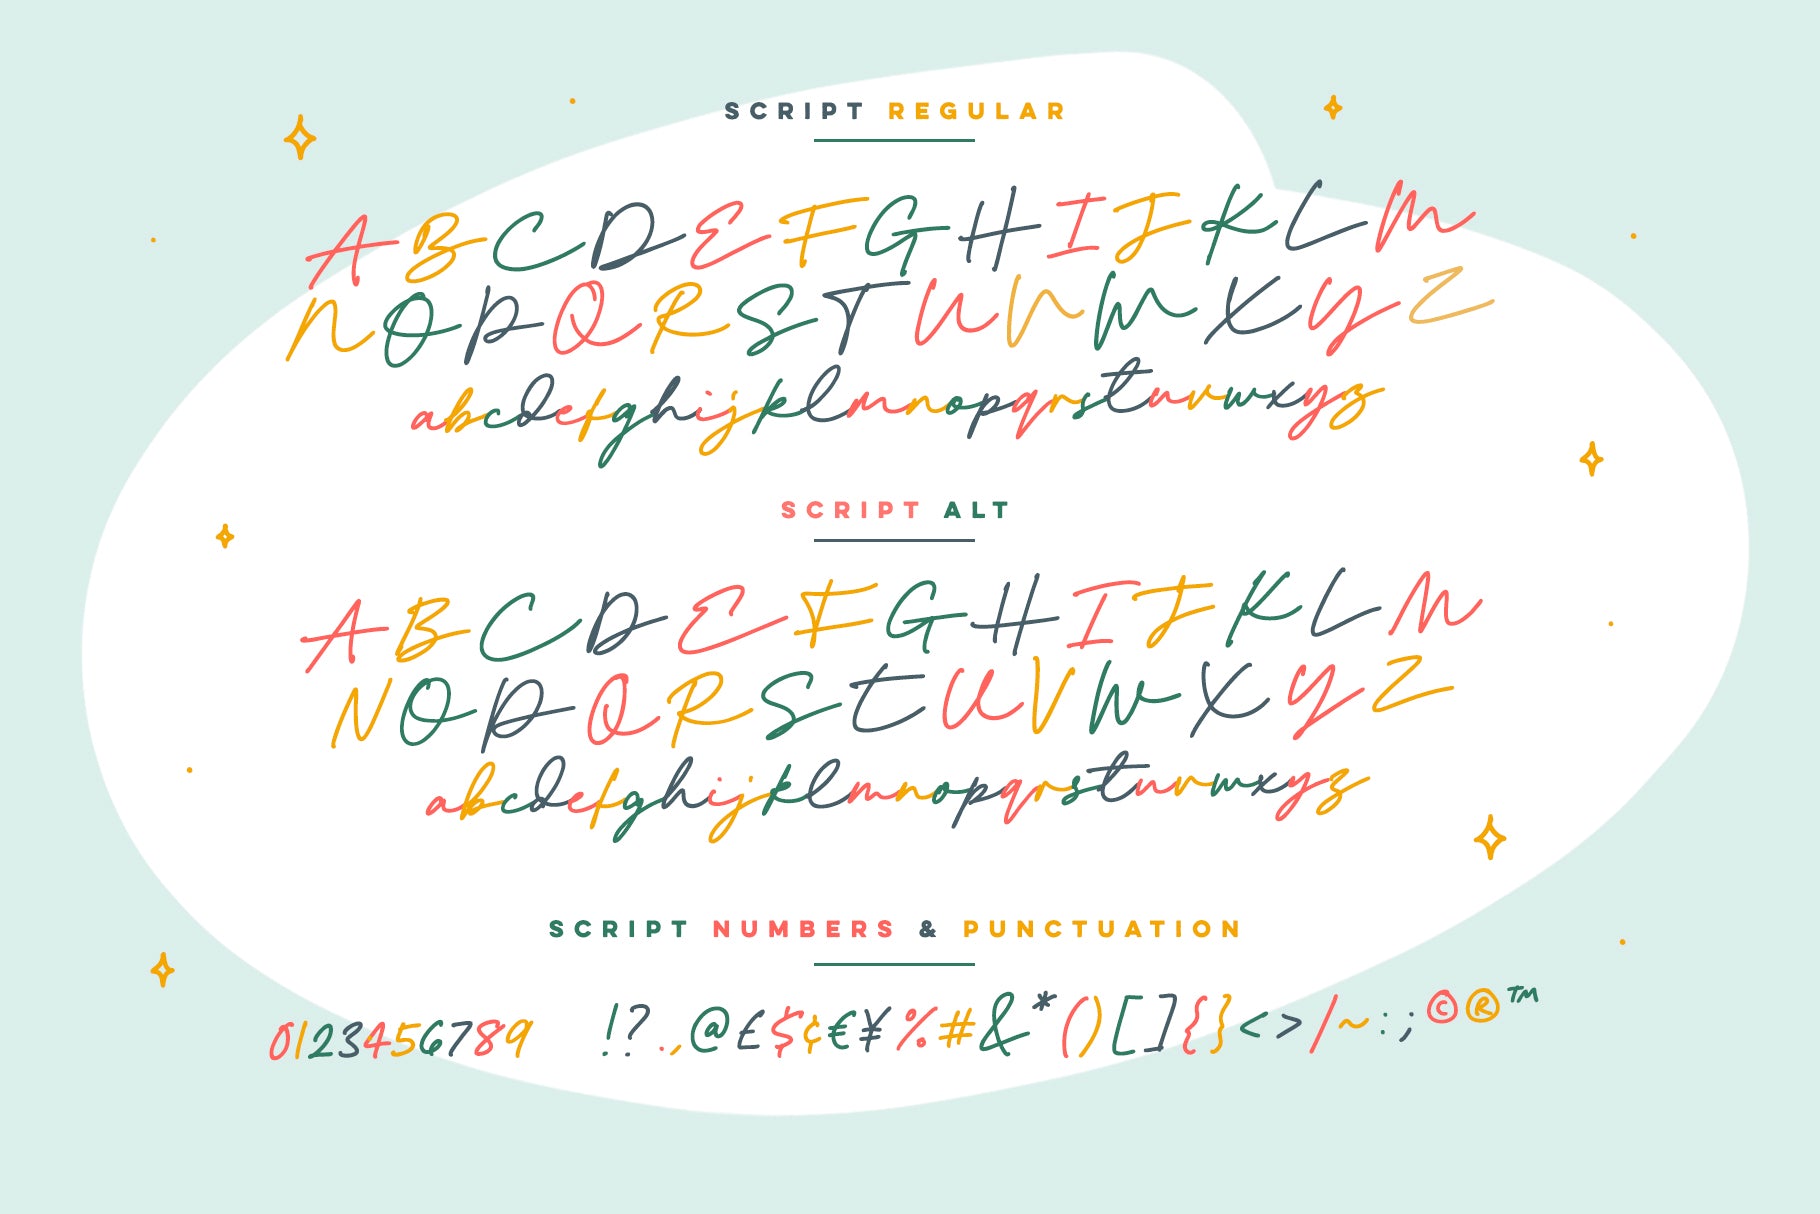 SCRIPT REGULAR
A B C D E F G H I J K L M
N O P Q R S T U V W X Y Z
a b c d e f g h i j k l m n o p q r s t u v w x y z
SCRIPT ALT
A B C D E F G H I J K L M
N O P Q R S T U V W X Y Z
a b c d e f g h i j k l m n o p q r s t u v w x y z
SCRIPT NUMBERS & PUNCTUATION
0123456789 !?.,@£$¢€¥%#&*()[]{}<>/~:;©®™